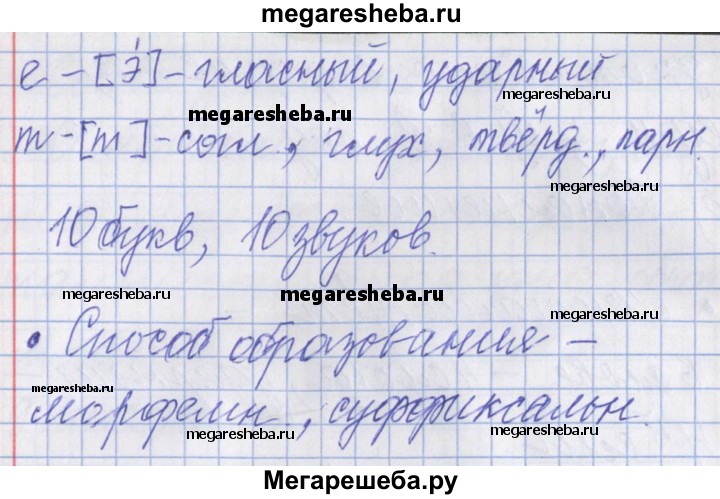 megaresheba.ru
е – [э́] – гласный, ударный
megaresheba.ru
megaresheba.ru
т – [т] – согл., глух, твёрд., парн.
megaresheba.ru
10 букв, 10 звуков.
megaresheba.ru
megaresheba.ru
megaresheba.ru
• Способ образования –
megaresheba.ru
морфемн, суффиксальн.
megaresheba.ru
megaresheba.ru
Мегарешеба.ру